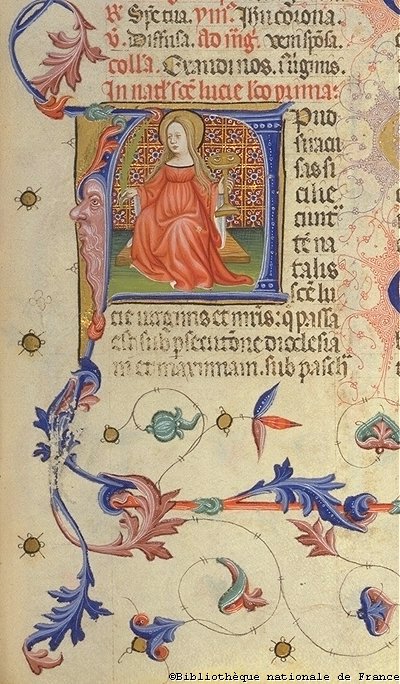 ℟ Sp̄etua. ℣iij. Ihū corona.
℣. Diffusa. Ad mḡ. Veni sposa.
colla. Exaudi nos. ꝶ uginis.
In natł sc̄e lucie lc̄o prima:
Apud
siracu
sas si
cilie
ciuit
te na
talis
sc̄e lu
cie uirginis et mr̄is: q̄ passa
est sub ꝑsecutōne dioclesia
ni et maximiani. sub pasch
©Bibliothèque nationale de France